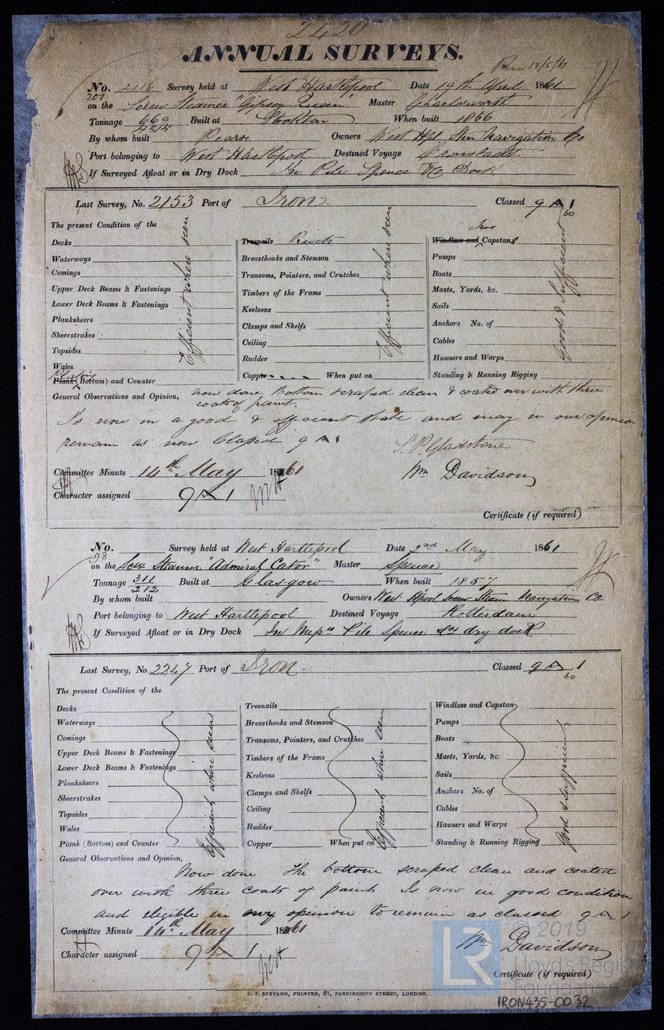 2420
ANNUAL SURVEYS.
No. 2116 Survey held at West Hartlepool Date 19th April 1861
on the Screw Steamer "Gipsey Queen" Master Charlesworth
Tonnage Built at Stockton When built
By whom built Pearse Owners West Hpl Stm Navigation Co
Port belonging to West Hartlepool Destined Voyage Cronstadt
If Surveyed Afloat or in Dry Dock In Pile Spence &Co Dock
Last Survey, No. 2153 Port of Iron Classed 9 A 1
60
The present Condition of the
Decks
Waterways
Comings
Upper Deck Beams & Fastenings
Lower Deck Beams & Fastenings
Planksheers
Sheerstrakes
Topsides
Wales
Plank (Bottom) and Counter
Efficient where seen
Treenails Rivets
Breasthooks and Stemson
Transoms, Pointers, and Crutches
Timbers of the Frame
Keelsons
Clamps and Shelfs
Ceiling
Rudder
Copper When put on
Efficient where seen
Iron
Windlass and Capstan
Pumps
Boats
Masts, Yards, &c.
Sails
Anchors No. of
Cables
Hawsers and Warps
Standing & Running Rigging
Good & Sufficient
General Observations and Opinion, now done, Bottom scraped clean & coated over with three
coats of paint.
Is now in a good & efficient state and may in our opinion
remain as now Classed 9 A 1
S. P. Gladstone
Committee Minute 14th May 1861
Wm Davidson
Character assigned 9 A 1
Certificate (if required)
No. Survey held at West Hartlepool Date 2nd May 1861
on the Screw Steamer "Admiral Cator" Master Spence
Tonnage 311 Built at Glasgow When built 1857
212
By whom built Owners West Hpool Screw Steam Navigation Co
Port belonging to West Hartlepool Destined Voyage Rotterdam
If Surveyed Afloat or in Dry Dock In Messrs Pile Spence &Cos dry dock
Last Survey, No. 2247 Port of Iron. Classed 9 A 1
60
The present Condition of the
Decks
Waterways
Comings
Upper Deck Beams & Fastenings
Lower Deck Beams & Fastenings
Planksheers
Sheerstrakes
Topsides
Wales
Plank (Bottom) and Counter
Efficient where seen
Treenails
Breasthooks and Stemson
Transoms, Pointers, and Crutches
Timbers of the Frame
Keelsons
Clamps and Shelfs
Ceiling
Rudder
Copper When put on
Efficient where seen
Windlass and Capstan
Pumps
Boats
Masts, Yards, &c.
Sails
Anchors No. of
Cables
Hawsers and Warps
Standing & Running Rigging
Good & Sufficient
General Observations and Opinion,
Now done The bottom scraped clean and coated
over with three coats of paint Is now in good condition
and eligible in my opinion to remain as classed 9 A 1
Committee Minute 14th May 1861
Wm Davidson
Character assigned 9 A 1
Certificate (if required)
C. F. SEYFANG, PRINTER, 57, FARRINGDON STREET, LONDON.
LR © 2019
Lloyd's Register
Foundation
IRON435-0032